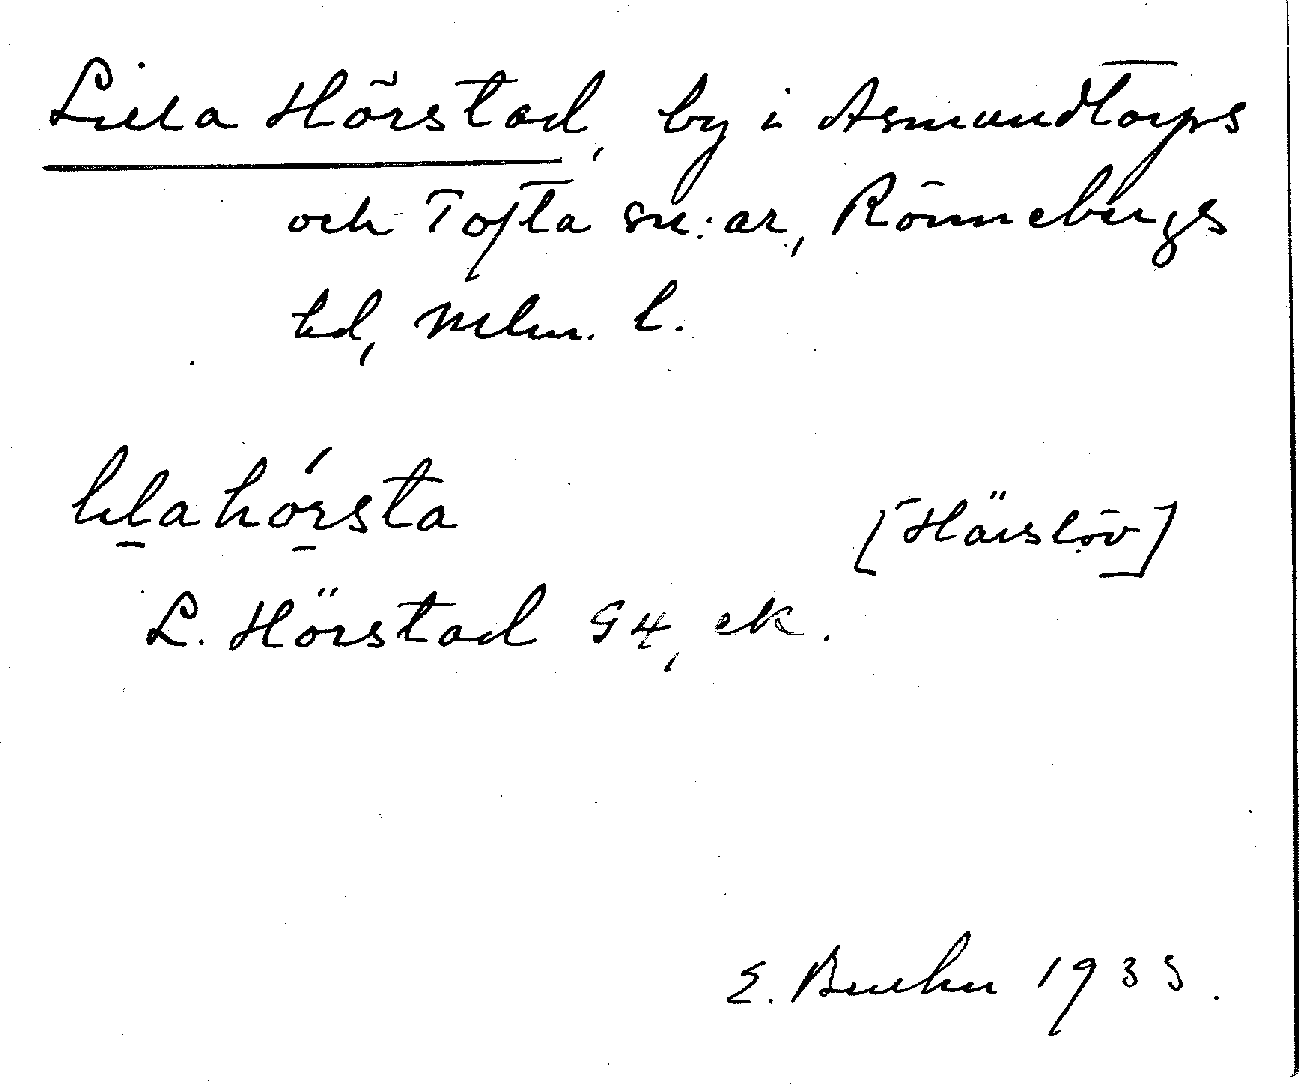 Lilla Hörstad, by i Asmundtorps
och Tofta sn:ar, Rönnebergs
hd, Mlm. l.
lilahórsta
[Härslöv]
L. Hörstad G4, ek.
E. 1933.